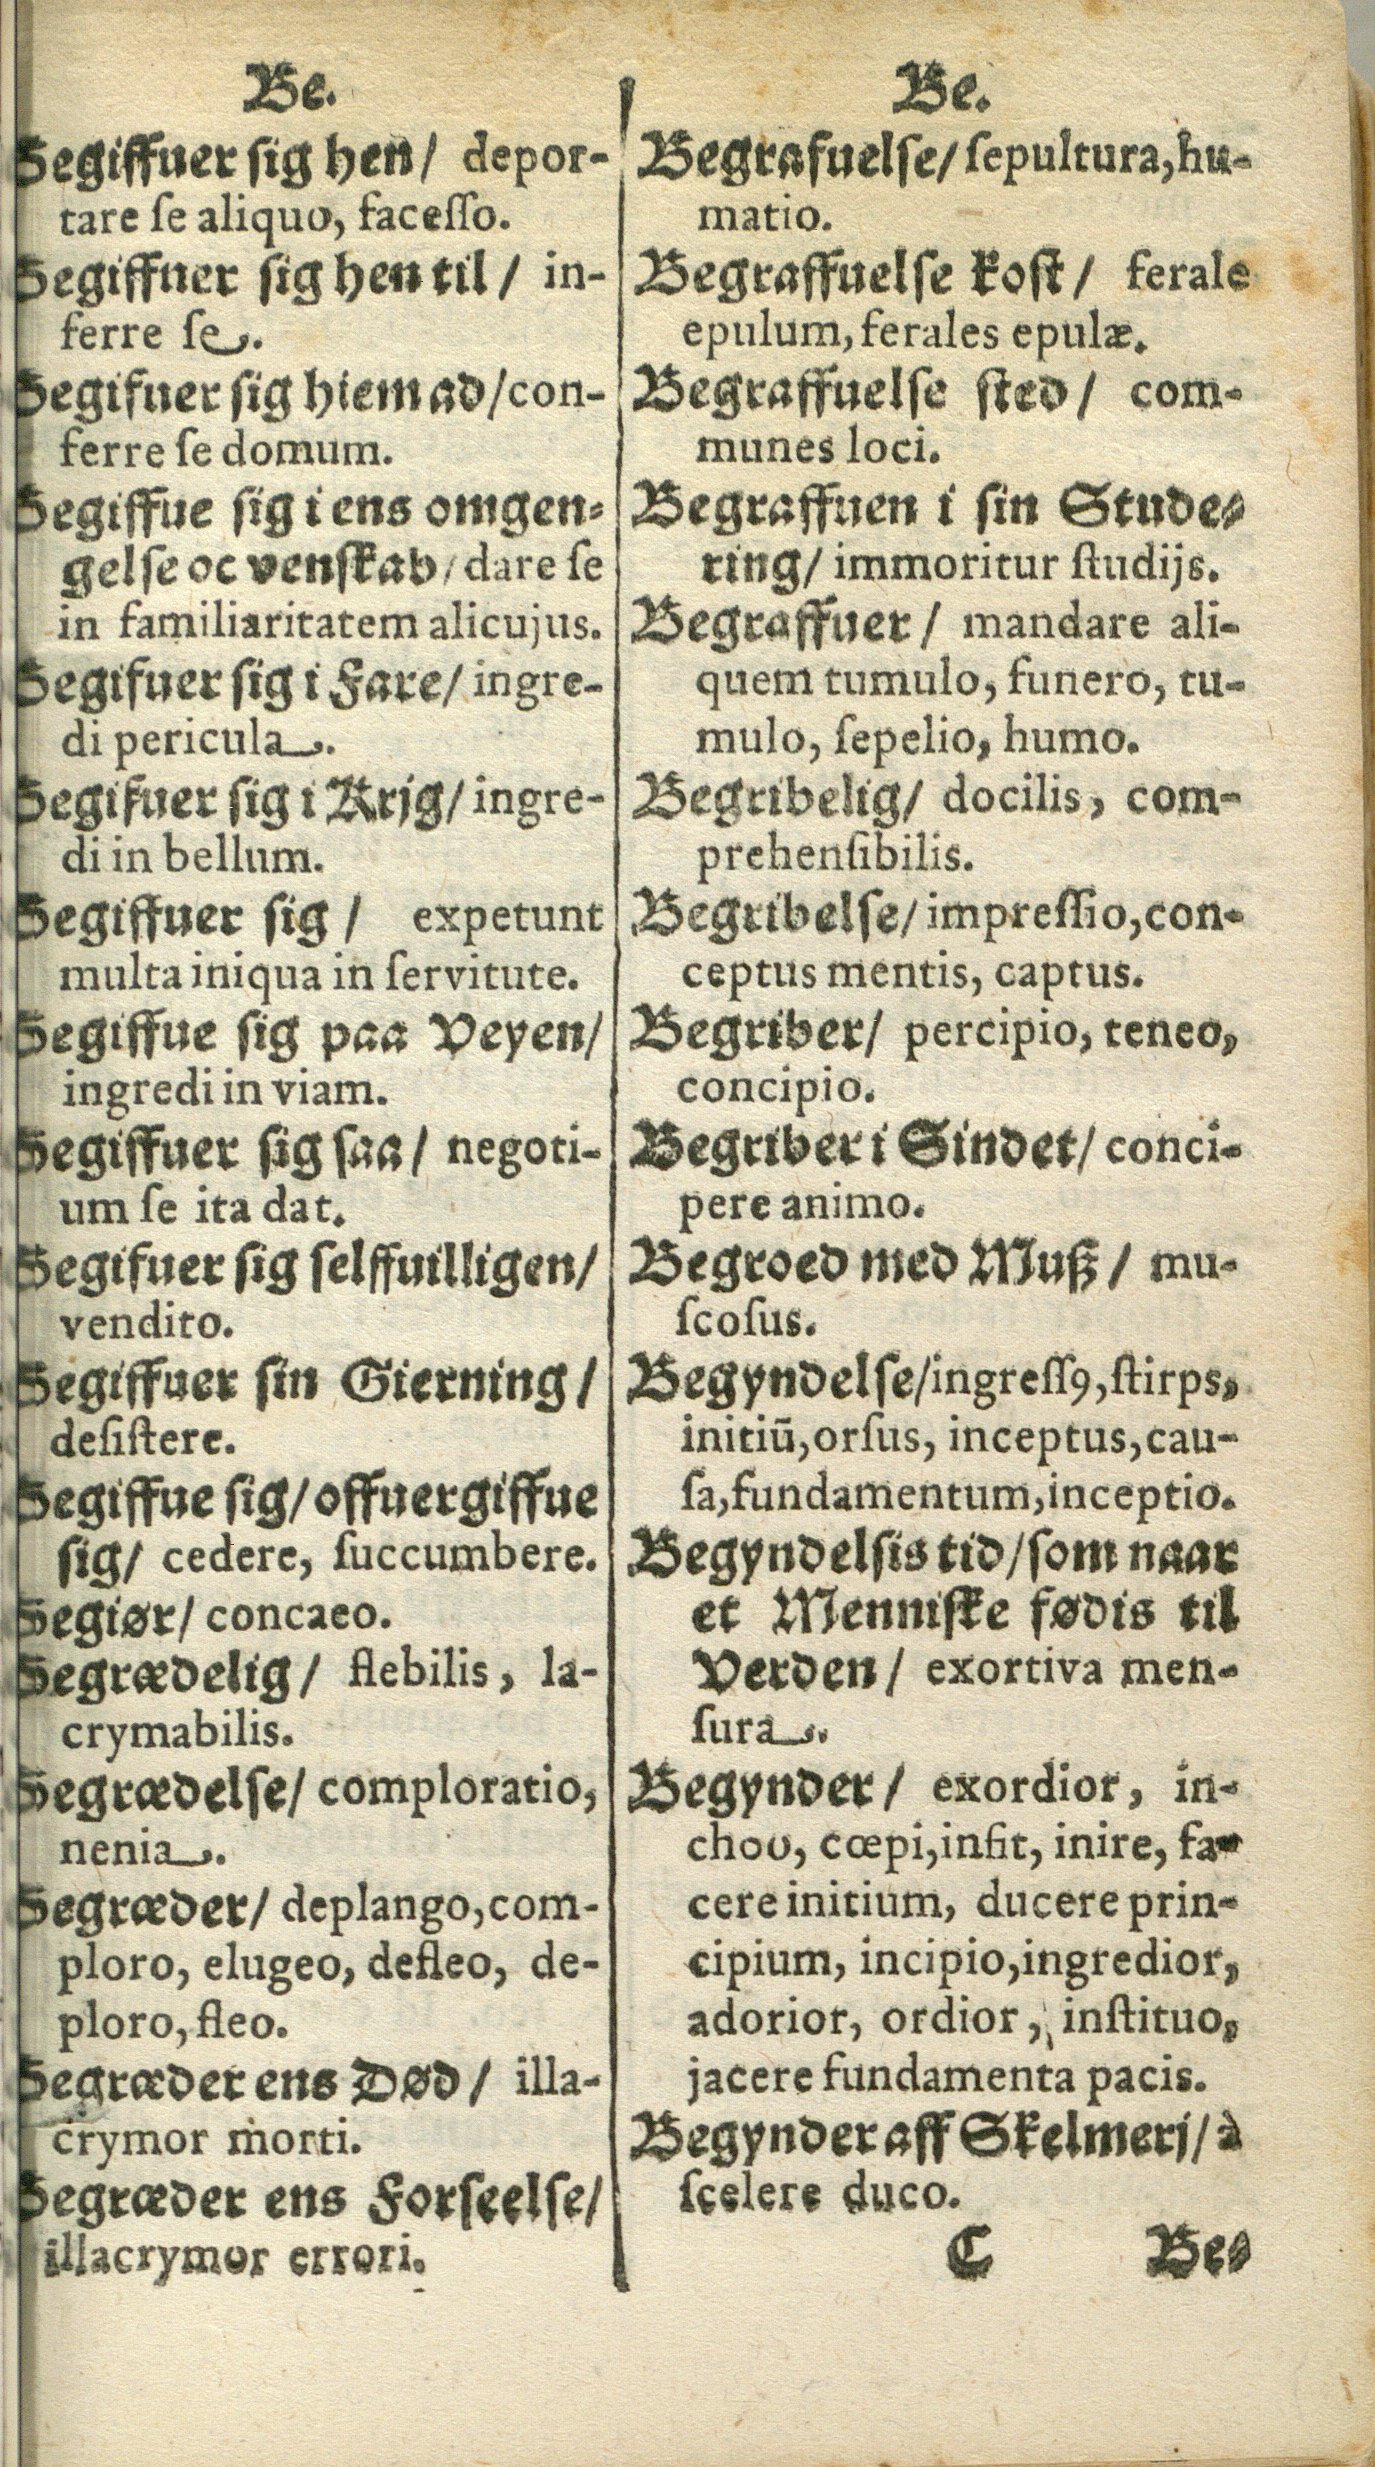 Be.
Begiffuer sig hen/ depor-
tare ſe aliquo, faceſſo.
Begiffuer sig hen til/ in-
ferre ſe.
Begifuer sig hiem ad/con-
ferre ſe domum.
Begiffue sig i ens omgen-
gelſe oc venſkab/dare ſe
in familiaritatem alicujus.
Begifuer sig i Fare/ingre-
di pericula.
Begifuer sig i Krjg/ingre-
di in bellum.
Begiffuer sig/ expetunt
multa iniqua in ſervitute.
Begiffue sig paa Veyen/
ingredi in viam.
Begiffuer sig ſaa/ negoti-
um ſe ita dat.
Begifuer sig ſelffuilligen/
vendito.
Begiffuer ſin Gierning/
deſiſtere.
Begiffue ſig/offuergiffue
ſig/ cedere, ſuccumbere.
Begiør/ concaeo.
Begrædelig/ flebilis, la-
crymabilis.
Begrædelſe/ comploratio,
nenia.
Begræder/ deplango,com-
ploro, elugeo, defleo, de-
ploro, fleo.
Begræder ens Død/ illa-
crymor morti.
Begræder ens Forſeelſe/
illacrymor errori.
Be.
Begrafuelſe/ſepultura,hu-
matio.
Begraffuelſe koſt/ ferale
epulum, ferales epulæ.
Begraffuelſe ſted/ com-
munes loci.
Begraffuen i ſin Stude-
ring/ immoritur ſtudijs.
Begraffuer/ mandare ali-
quem tumulo, funero, tu-
mulo, ſepelio, humo.
Begribelig/ docilis, com-
prehenſibilis.
Begribelſe/impreſſio,con-
ceptus mentis, captus.
Begriber/ percipio, teneo,
concipio.
Begriber i Sindet/conci-
pere animo.
Begroed med Muß/ mu-
ſcoſus.
Begyndelſe/ingreſſ9,ſtirps,
initiū,orſus, inceptus,cau-
ſa,fundamentum,inceptio.
Begyndelſis tid/ſom naar
et Menniſke fødis til
Verden/ exortiva men-
ſura.
Begynder/ exordior, in-
choo, cœpi,infit, inire, fa-
cere initium, ducere prin-
cipium, incipio,ingredior,
adorior, ordior, inſtituo,
jacere fundamenta pacis.
Begynder aff Skelmerj/à
ſcelere duco.
C Be-